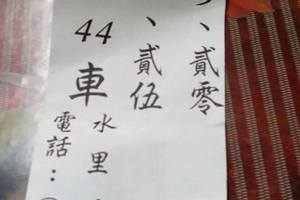 、貳零
、貳伍
44
車水里
電話：